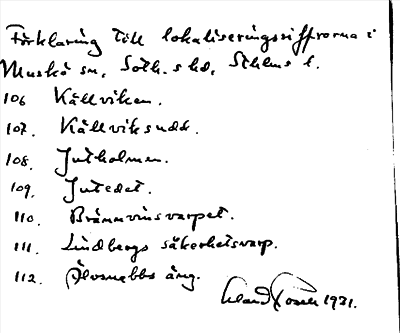 Förklaring till lokaliseringssiffrorna i
Muskö sn, Soth.s hd, Sthlms l.
106 Källviken.
107. Källviksudd.
108. Jutholmen.
109. Jutedet.
110. Brännvinsvarpet.
111. Lindbergs säkerhetsvarp.
112. Älvsnabbs äng.
1921.